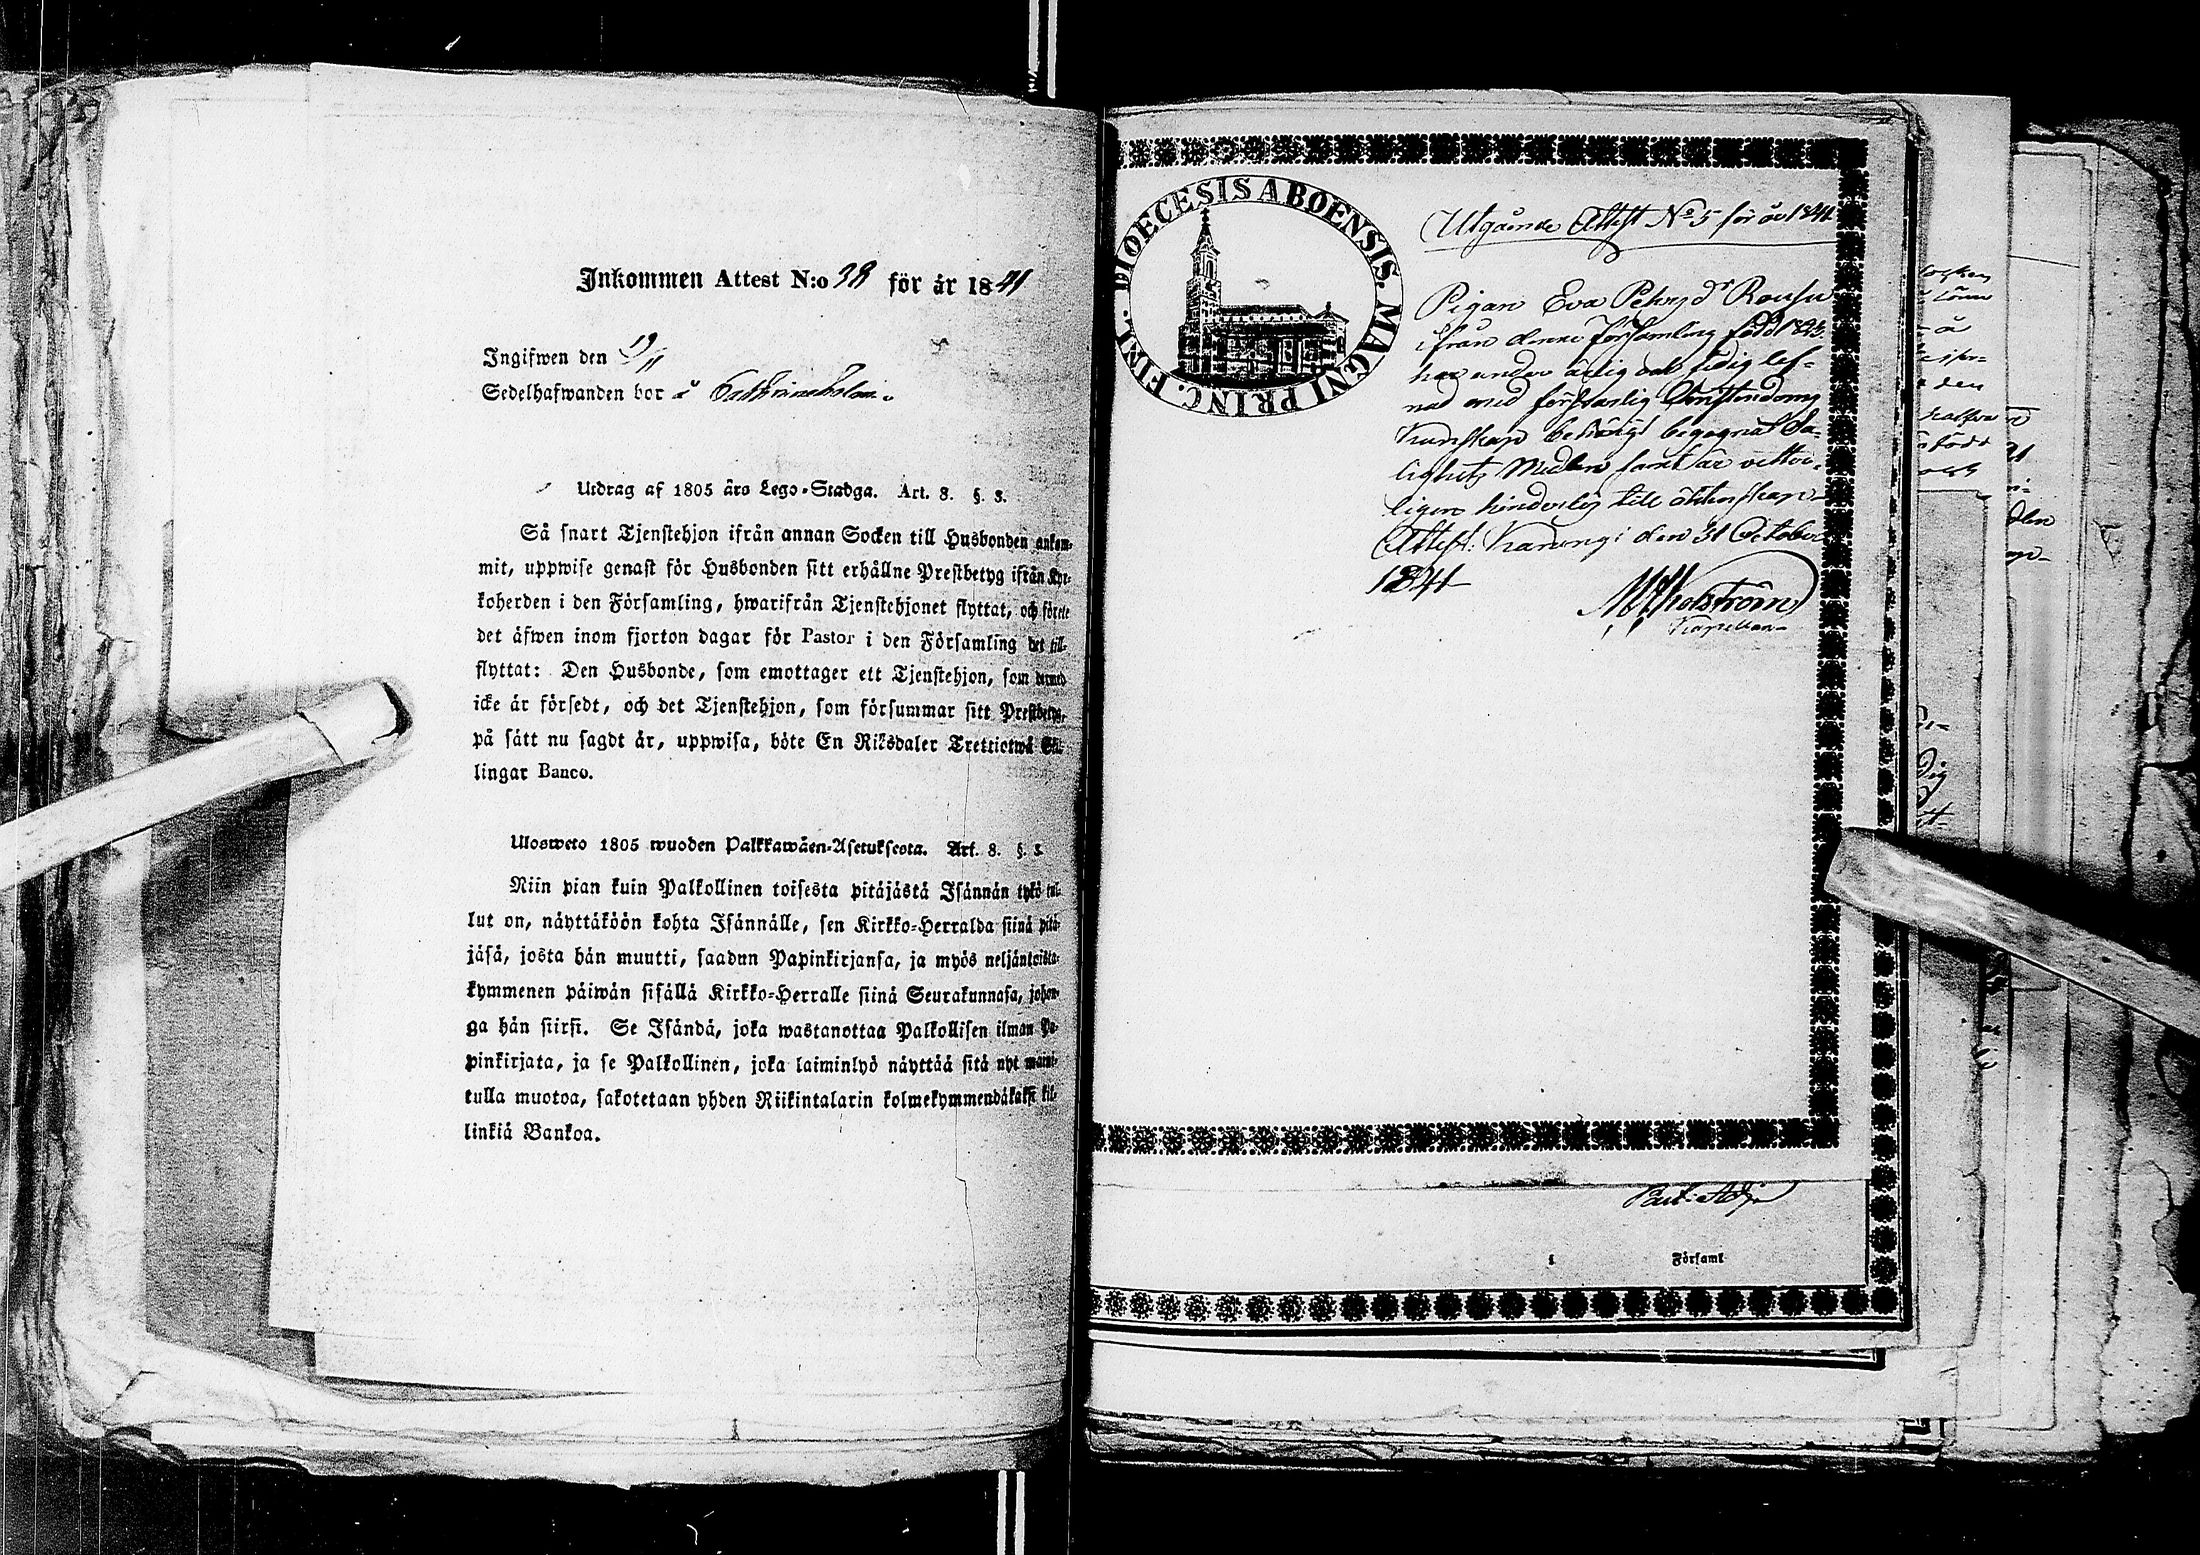 Inkommen Attest N:o 38 för år 1841
Ingifwen den 19/11
Sedelhafwanden bor å
Utdrag af 1805 års Lego-Stadga. Art. 8. §. 3.
Så snart Tjenstehjon ifrån annan Socken till Husbonden ankom-
mit, uppwise genast för Husbonden sitt erhållne Prestbetyg ifrån Kyr-
koherden i den Församling, hwarifrån Tjenstehjonet flyttat, och förete
det äfwen inom fjorton dagar för Pastor i den Församling det till-
flyttat: Den Husbonde, som emottager ett Tjenstehjon, som dermed
icke är försedt, och det Tjenstehjon, som försummar sitt Prestbetyg,
på sätt nu sagdt är, uppwisa, böte En Riksdaler Trettiotwå Skil-
lingar Banco.
Ulosweto 1805 wuoden Palkkawäen-Asetuksesta. Art. 8. §. 3.
Niin pian kuin Palkollinen toisesta pitäjästä Isännän tykö tul-
lut on, näyttäköön kohta Isännälle, sen Kirkko-Herralda siinä pitä-
jäsä, josta hän muutti, saadun Papinkirjansa, ja myös neljäntoista-
kymmenen päiwän sisällä Kirkko-Herralle siinä Seurakunnasa, johon-
ga hän siirsi. Se Isändä, joka wastanottaa Palkollisen ilman Pa-
pinkirjata, ja se Palkollinen, joka laiminlyö näyttää sitä nyt maini-
tulla muotoa, sakotetaan yhden Riikintalarin kolmekymmendäkaksi kil-
linkiä Bankoa.
DIOECESIS ABOENSIS. MAGNI PRINC. FINL.
Utgående Attest No 5 för år 1841
Pigan Eva Pehrsdr Rousu
ifrån denna Församling född 1823
har under ärlig och sedig lef-
nad med försvarlig Christendoms
Kunskap behörigt begagnat Sa-
lighets Medlen samt är vetter-
ligen hinderlös till äktenskap.
Attest. Karung i den 31 October
1841
Kapellan
i Församl